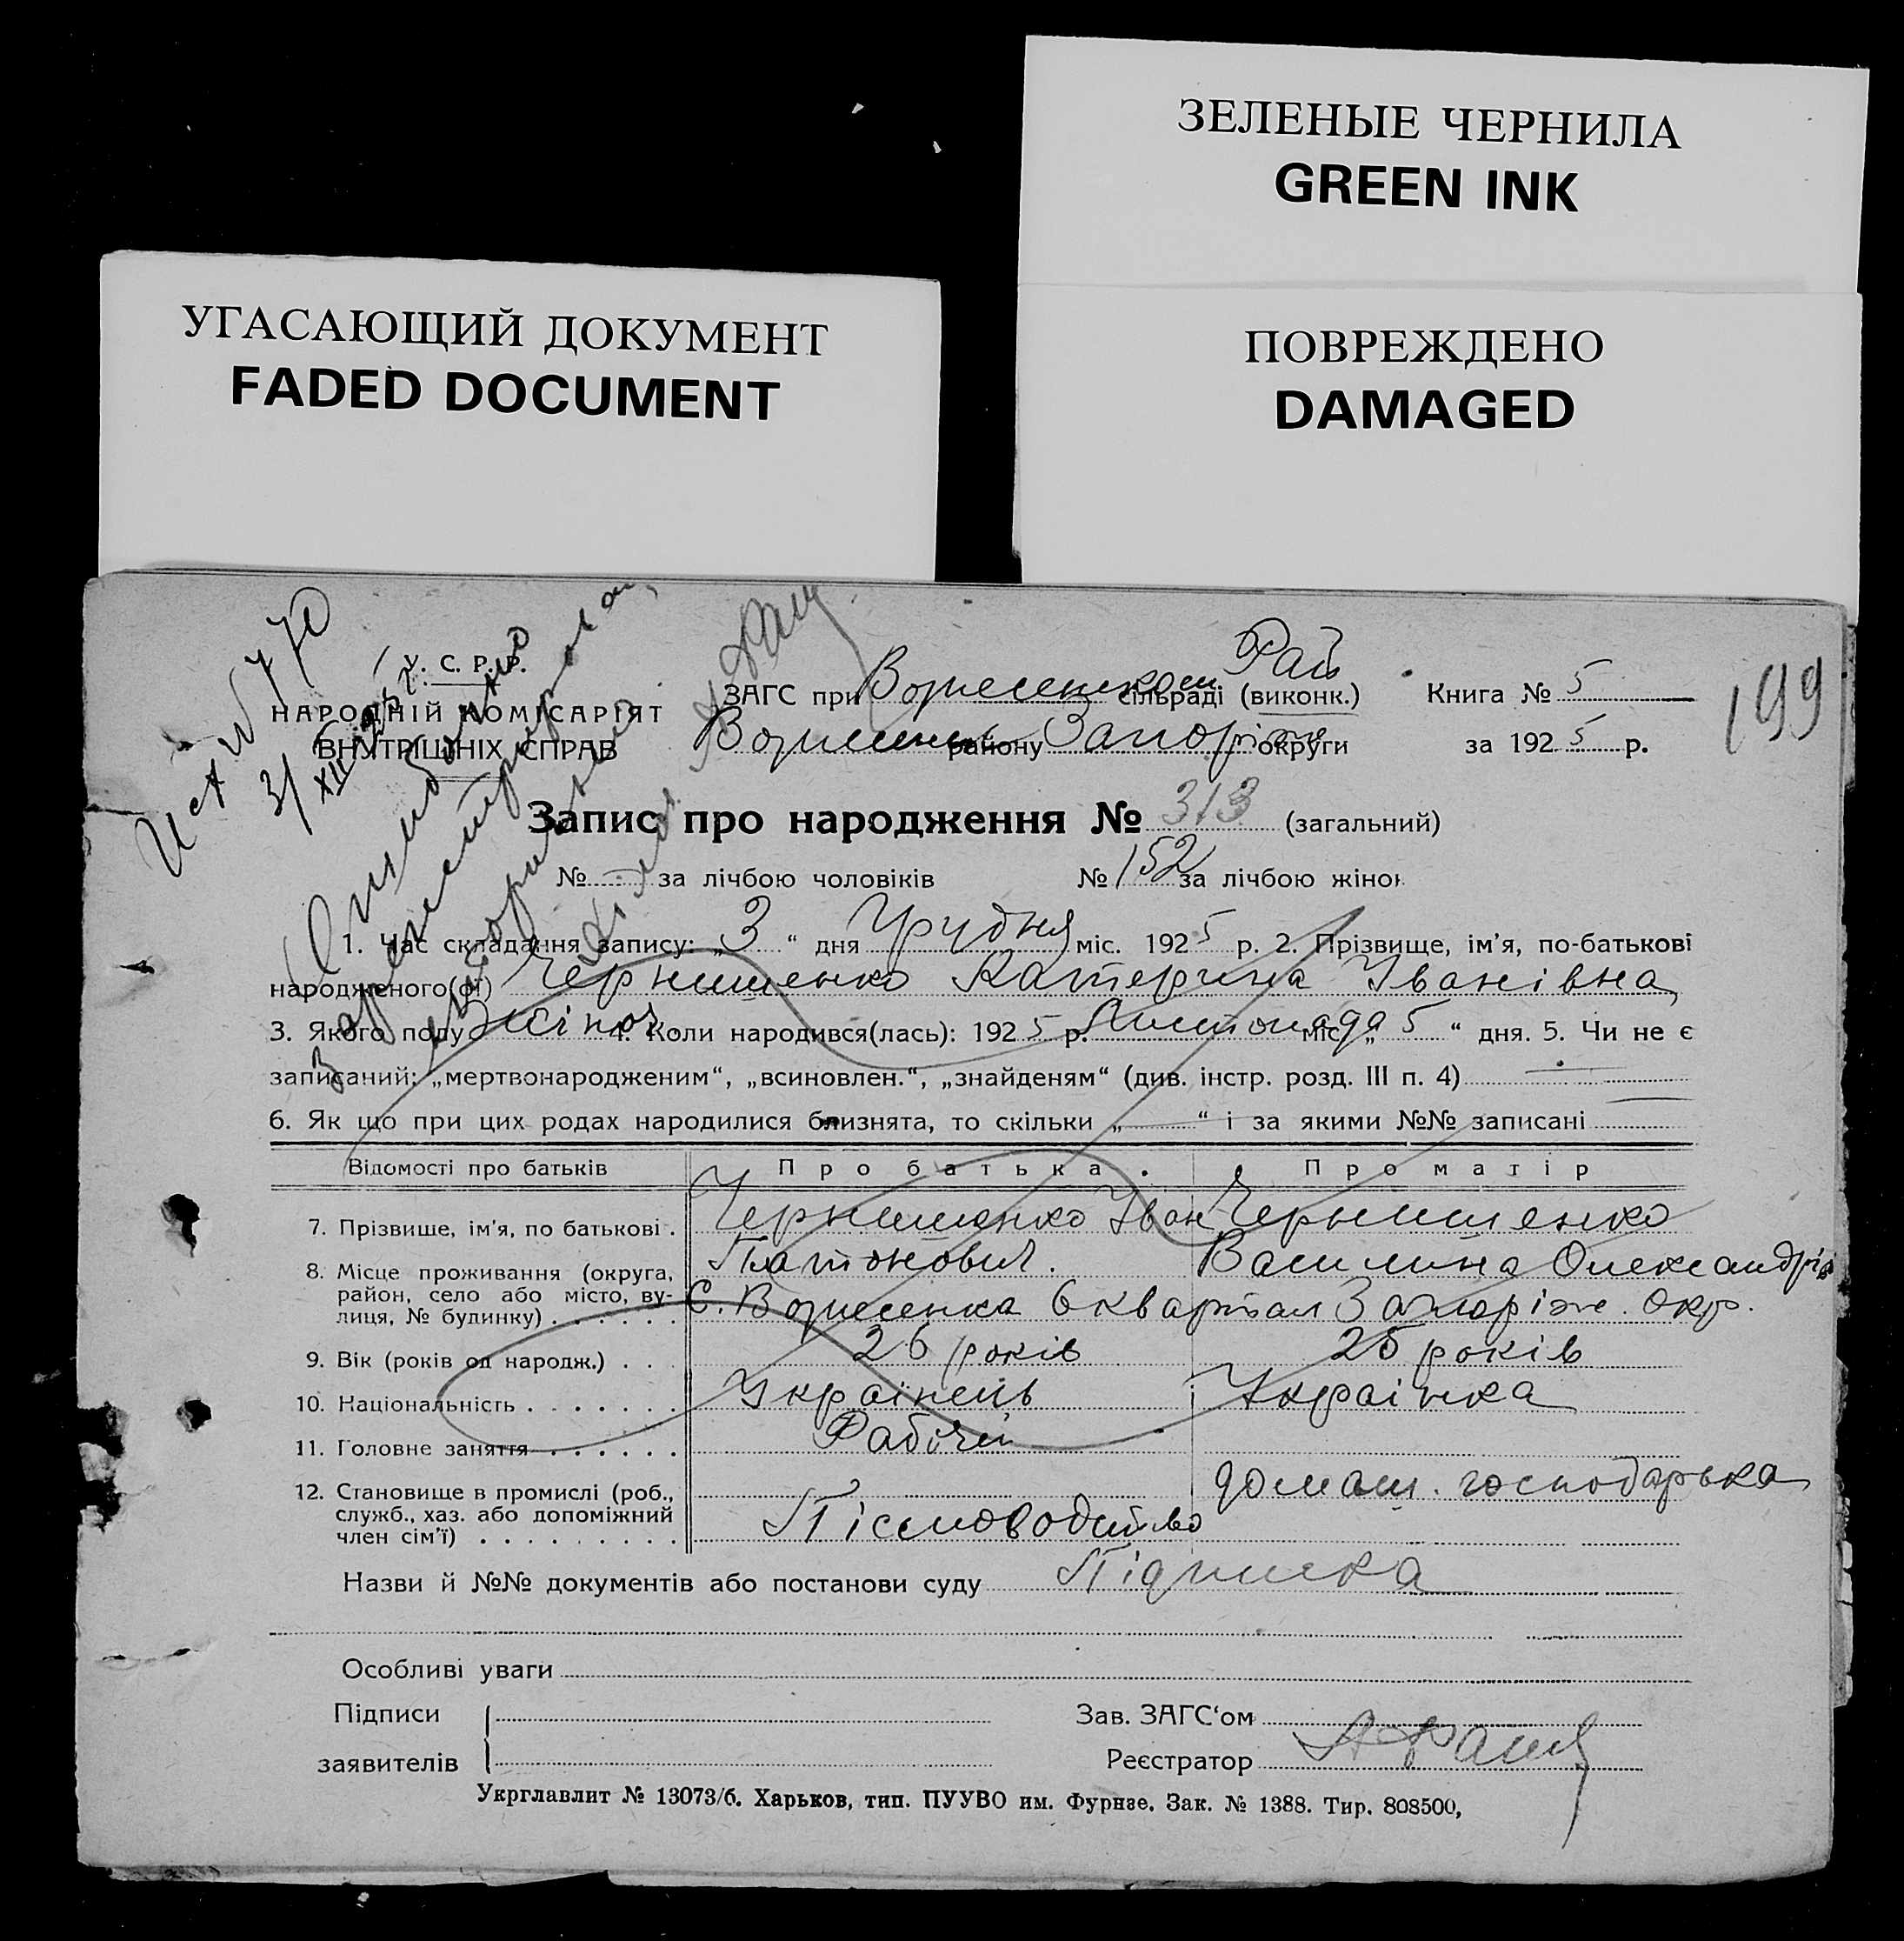 ЗЕЛЕНЫЕ ЧЕРНИЛА
GREEN INK
УГАСАЮЩИЙ ДОКУМЕНТ
FADED DOCUMENT
ПОВРЕЖДЕНО
DAMAGED
199
У. С. Р. Р.
НАРОДНІЙ КОМІСАРІЯТ
ВНУТРІШНІХ СПРАВ
№ 70
Ошибочно
зарегистрирован
Рай
ЗАГС при Вознесенском сільраді (виконк.) Книга № 5
району Запоріж округи за 1925 р.
Запис про народження № 313 (загальний)
№ - за лічбою чоловіків № 152 за лічбою жінок
1. Час складання запису: „3“ дня Грудня міс. 1925 р. 2. Прізвище, ім'я, по-батькові
народженого(ої) Чернишенко Катерина Іванівна
3. Якого полу жіноч. 4. Коли народився(лась): 1925 р. Листопада міс. „5“ дня. 5. Чи не є
записаний: „мертвонародженим“, „всиновлен.“, „знайденям“ (див. інстр. розд. III п. 4)
6. Як що при цих родах народилися близнята, то скільки „—“ і за якими №№ записані
Відомості про батьків Про батька. Про матір
7. Прізвище, ім'я, по батькові . Чернишенко Іван Чернишенко
Платонович. Василина Олександрів
8. Місце проживання (округа,
район, село або місто, ву-
лиця, № будинку) . . . . . . С. Вознесенка 6 квартал Запоріж. Окр.
9. Вік (років од народж.) . . . 26 років 25 років
10. Національність . . . . . . . Українець Українка
11. Головне заняття . . . . . . Рабочий
12. Становище в промислі (роб.,
служб., хаз. або допоміжний
член сім'ї) . . . . . . . . . домаш. господарька
Назви й №№ документів або постанови суду Підписка
Особливі уваги
Підписи
заявителів
Зав. ЗАГС'ом
Реєстратор
Укрглавлит № 13073/б. Харьков, тип. ПУУВО им. Фурнзе. Зак. № 1388. Тир. 808500,